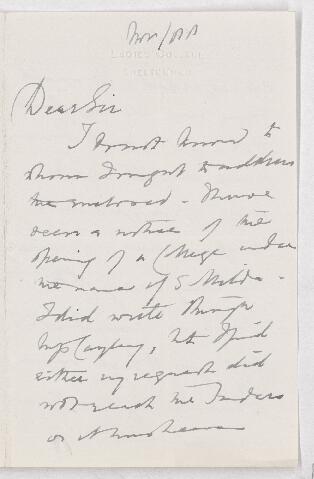 Nov/88
LADIES' COLLEGE
CHELTENHAM
Dear Sir
I do not know to
whom I ought to address
the enclosed. I have
seen a notice of the
opening of a College under
the name of S Hilda.
I did write through
Mrs Cayley, but I find
either my request did
not reach the Founders
or it must have